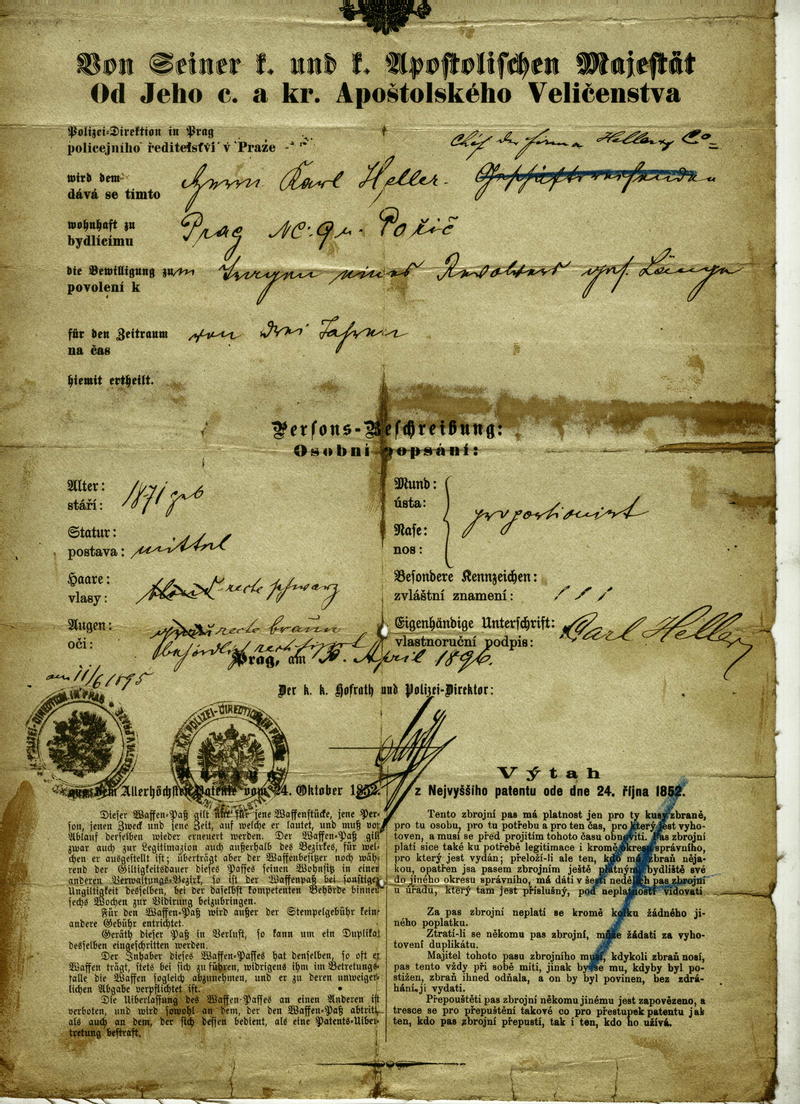 Von Seiner k. und k. Apostolischen Majestät
Od Jeho c. a kr. Apoštolského Veličenstva
Polizei-Direktion in Prag
policejního ředitelství v Praze
Chef der Firma Heller & Co
wird dem
dává se tímto
Herrn Karl Heller
wohnhaft zu
bydlícímu
Prag NC: Pořič
die Bewilligung zum
povolení k
Tragen eines Revolvers
für den Zeitraum
na čas
von drei Jahren
hiemit ertheilt.
Persons-Beschreibung:
Osobní popsání:
Alter:
stáří:
1871 geb
Mund:
ústa:
Nase:
nos:
proportionirt
Statur:
postava:
mittel
Haare:
vlasy:
blond recte schwarz
Besondere Kennzeichen:
zvláštní znamení:
Augen:
oči:
recte braun
Eigenhändige Unterschrift:
vlastnoruční podpis:
Carl Heller
Prag, am April 1896.
am 11/6 1895
Der k. k. Hofrath und Polizei-Direktor:
K.K. POLIZEI-DIRECTION IN PRAG
aus dem Allerhöchsten Patente vom 24. Oktober 1852.
Dieser Waffen-Paß gilt nur für jene Waffenstücke, jene Per-
son, jenen Zweck und jene Zeit, auf welche er lautet, und muß vor
Ablauf derselben wieder erneuert werden. Der Waffen-Paß gilt
zwar auch zur Legitimazion auch außerhalb des Bezirkes, für wel-
chen er ausgestellt ist; überträgt aber der Waffenbesitzer noch wäh-
rend der Giltigkeitsdauer dieses Passes seinen Wohnsitz in einen
anderen Verwaltungs-Bezirk, so ist der Waffenpaß bei sonstiger
Ungiltigkeit desselben, bei der daselbst kompetenten Behörde binnen
sechs Wochen zur Vidirung beizubringen.
Für den Waffen-Paß wird außer der Stempelgebühr keine
andere Gebühr entrichtet.
Geräth dieser Paß in Verlust, so kann um ein Duplikat
desselben eingeschritten werden.
Der Inhaber dieses Waffen-Passes hat denselben, so oft er
Waffen trägt, stets bei sich zu führen, widrigens ihm im Betretungs-
falle die Waffen sogleich abzunehmen, und er zu deren unweiger-
lichen Abgabe verpflichtet ist.
Die Uiberlassung des Waffen-Passes an einen Anderen ist
verboten, und wird sowohl an dem, der den Waffen-Paß abtritt,
als auch an dem, der sich dessen bedient, als eine Patents-Uiber-
tretung bestraft.
Výtah
z Nejvyššího patentu ode dne 24. října 1852.
Tento zbrojní pas má platnost jen pro ty kusy zbraně,
pro tu osobu, pro tu potřebu a pro ten čas, pro který jest vyho-
toven, a musí se před projitím tohoto času obnoviti. Pas zbrojní
platí sice také ku potřebě legitimace i kromě okresu správního,
pro který jest vydán; přeloží-li ale ten, kdo má zbraň něja-
kou, opatřen jsa pasem zbrojním ještě platným, bydliště své
do jiného okresu správního, má dáti v šesti nedělích pas zbrojní
u úřadu, který tam jest příslušný, pod neplatností vidovati
Za pas zbrojní neplatí se kromě kolku žádného ji-
ného poplatku.
Ztratí-li se někomu pas zbrojní, může žádati za vyho-
tovení duplikátu.
Majitel tohoto pasu zbrojního musí, kdykoli zbraň nosí,
pas tento vždy při sobě míti, jinak by se mu, kdyby byl po-
stižen, zbraň ihned odňala, a on by byl povinen, bez zdrá-
hání ji vydati.
Přepouštěti pas zbrojní někomu jinému jest zapovězeno, a
tresce se pro přepuštění takové co pro přestupek patentu jak
ten, kdo pas zbrojní přepustí, tak i ten, kdo ho užívá.